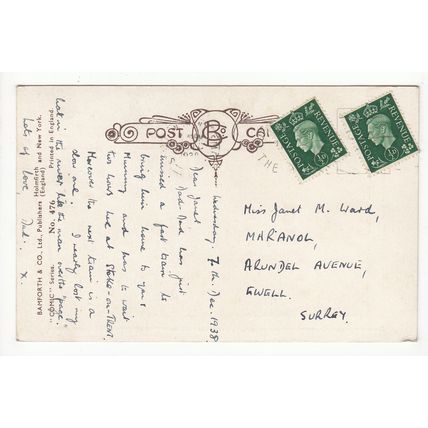 POST CARD
Wednesday. 7th. Dec. 1938
Dear Janet,
Dad has just
missed a fast train to
bring him home to your
Mummy and has to wait
two hours here at STOKE-on-TRENT.
Moreover the next train is a
slow one. I nearly lost my
hat in the river like the man over the "page".
Lots of love
Dad. x.
BAMFORTH & CO., Ltd., Publishers Holmfirth (England) and New York.
"COMIC" Series. No. 476 Printed in England.
POSTAGE REVENUE
½D
POSTAGE REVENUE
½D
THE
Miss Janet M. Ward,
"MARANOL",
ARUNDEL AVENUE,
EWELL.
SURREY.